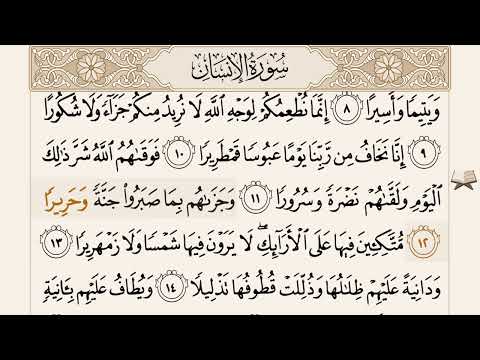 سُورَةُ الإِنسَانِ
وَيَتِيمًا وَأَسِيرًا ٨ إِنَّمَا نُطْعِمُكُمْ لِوَجْهِ اللَّهِ لَا نُرِيدُ مِنكُمْ جَزَاءً وَلَا شُكُورًا
٩ إِنَّا نَخَافُ مِن رَّبِّنَا يَوْمًا عَبُوسًا قَمْطَرِيرًا ١٠ فَوَقَاهُمُ اللَّهُ شَرَّ ذَٰلِكَ
الْيَوْمِ وَلَقَّاهُمْ نَضْرَةً وَسُرُورًا ١١ وَجَزَاهُم بِمَا صَبَرُوا جَنَّةً وَحَرِيرًا
١٢ مُّتَّكِئِينَ فِيهَا عَلَى الْأَرَائِكِ ۖ لَا يَرَوْنَ فِيهَا شَمْسًا وَلَا زَمْهَرِيرًا ١٣
وَدَانِيَةً عَلَيْهِمْ ظِلَالُهَا وَذُلِّلَتْ قُطُوفُهَا تَذْلِيلًا ١٤ وَيُطَافُ عَلَيْهِم بِآنِيَةٍ